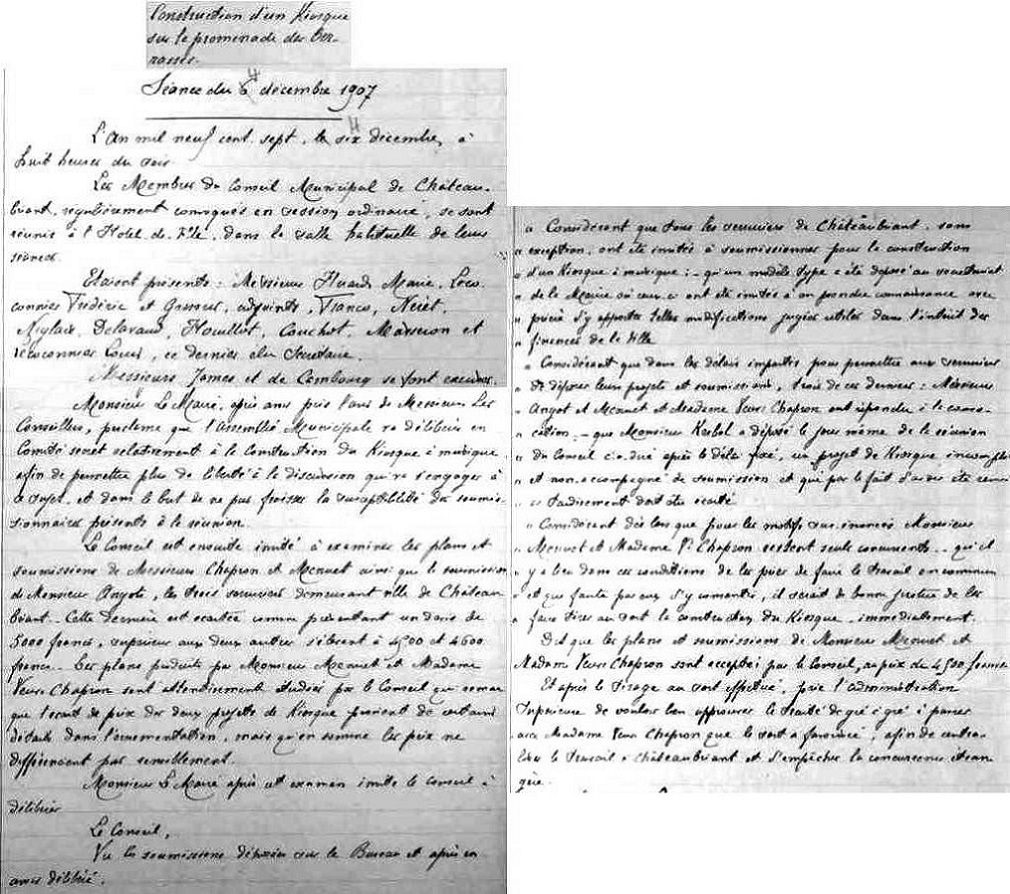 Construction d'un Kiosque
sur la promenade des Ter-
rasses.
Séance du 6 4 décembre 1907
L'An mil neuf cent sept, le six 4 décembre, à
huit heures du soir
Les Membres du Conseil Municipal de Château-
briant, régulièrement convoqués en session ordinaire, se sont
réunis à l'Hotel de Ville, dans la salle habituelle de leurs
séances.
Etaient présents : Messieurs Huard, Maire, Leco
connier Frédéric et Grosseur, adjoints, Franco, Neuet,
Delavaud, Houillot, Cauchot, et
Louis, ce dernier élu Secrétaire.
Messieurs James et de Cambourg se font excuser.
Monsieur Le Maire, après avoir pris l'avis de Messieurs Les
Conseillers, proclame que l'assemblée Municipale va délibérer en
Comité secret relativement à la Construction du Kiosque à musique,
afin de permettre plus de liberté à la discussion qui va s'engager à
ce sujet, et dans le but de ne pas froisser la susceptibilité des soumis-
sionnaires présents à la réunion.
Le Conseil est ensuite invité à examiner les plans et
soumissions de Messieurs Chapron et Menuet ainsi que la soumission
de Monsieur Angot, les trois serruriers demeurant ville de Château
briant. Cette dernière est écartée comme présentant un devis de
5000 francs, supérieur aux deux autres s'élevant à 4500 et 4600
francs. Les plans produits par Monsieur Menuet et Madame
Veuve Chapron sont attentivement étudiés par le Conseil qui remar
que l'écart de prix des deux projets de Kiosque provient de certains
détails dans l'ornementation, mais qu'en somme les prix ne
différencient pas sensiblement.
Monsieur Le Maire après cet examen invite le conseil à
délibérer
Le Conseil,
Vu les soumissions déposées sur le Bureau et après en
avoir délibéré,
" Considérant que tous les serruriers de Châteaubriant, sans
exception, ont été invités à soumissionner pour la construction
" d'un Kiosque à musique ; - qu'un modèle type a été déposé au secrétariat
" de la Mairie où ceux-ci ont été invités à en prendre connaissance avec
" prière d'y apporter telles modifications jugées utiles dans l'intérêt des
" finances de la Ville
" Considérant que dans les délais impartis pour permettre aux serruriers
" de déposer leurs projets et soumissions, trois de ces derniers : Messieurs
" Angot et Menuet et Madame Veuve Chapron ont répondu à la convo-
" cation. - que Monsieur Kerbol a déposé le jour même de la réunion
" du Conseil c.a.d. après le délai fixé, un projet de Kiosque incomplet
" et non accompagné de soumission et que par le fait d'avoir été remis
" tardivement doit être écarté
" Considérant dès lors que pour les motifs sus-énoncés Monsieur
" Menuet et Madame Ve Chapron restent seuls concurrents - qu'il
" y a lieu dans ces conditions de les prier de faire le travail en commun
" et que faute par eux d'y consentir, il serait de bonne justice de les
" faire tirer au sort la construction du Kiosque immédiatement.
Dit que les plans et soumissions de Monsieur Menuet et
Madame Veuve Chapron sont acceptés par le Conseil, au prix de 4500 francs
Et après le tirage au sort effectué, prie l'administration
Supérieure de vouloir bien approuver le traité de gré à gré à passer
avec Madame Veuve Chapron que le sort a favorisée, afin de centra-
liser le travail à Châteaubriant et d'empêcher la concurrence étran
gère.